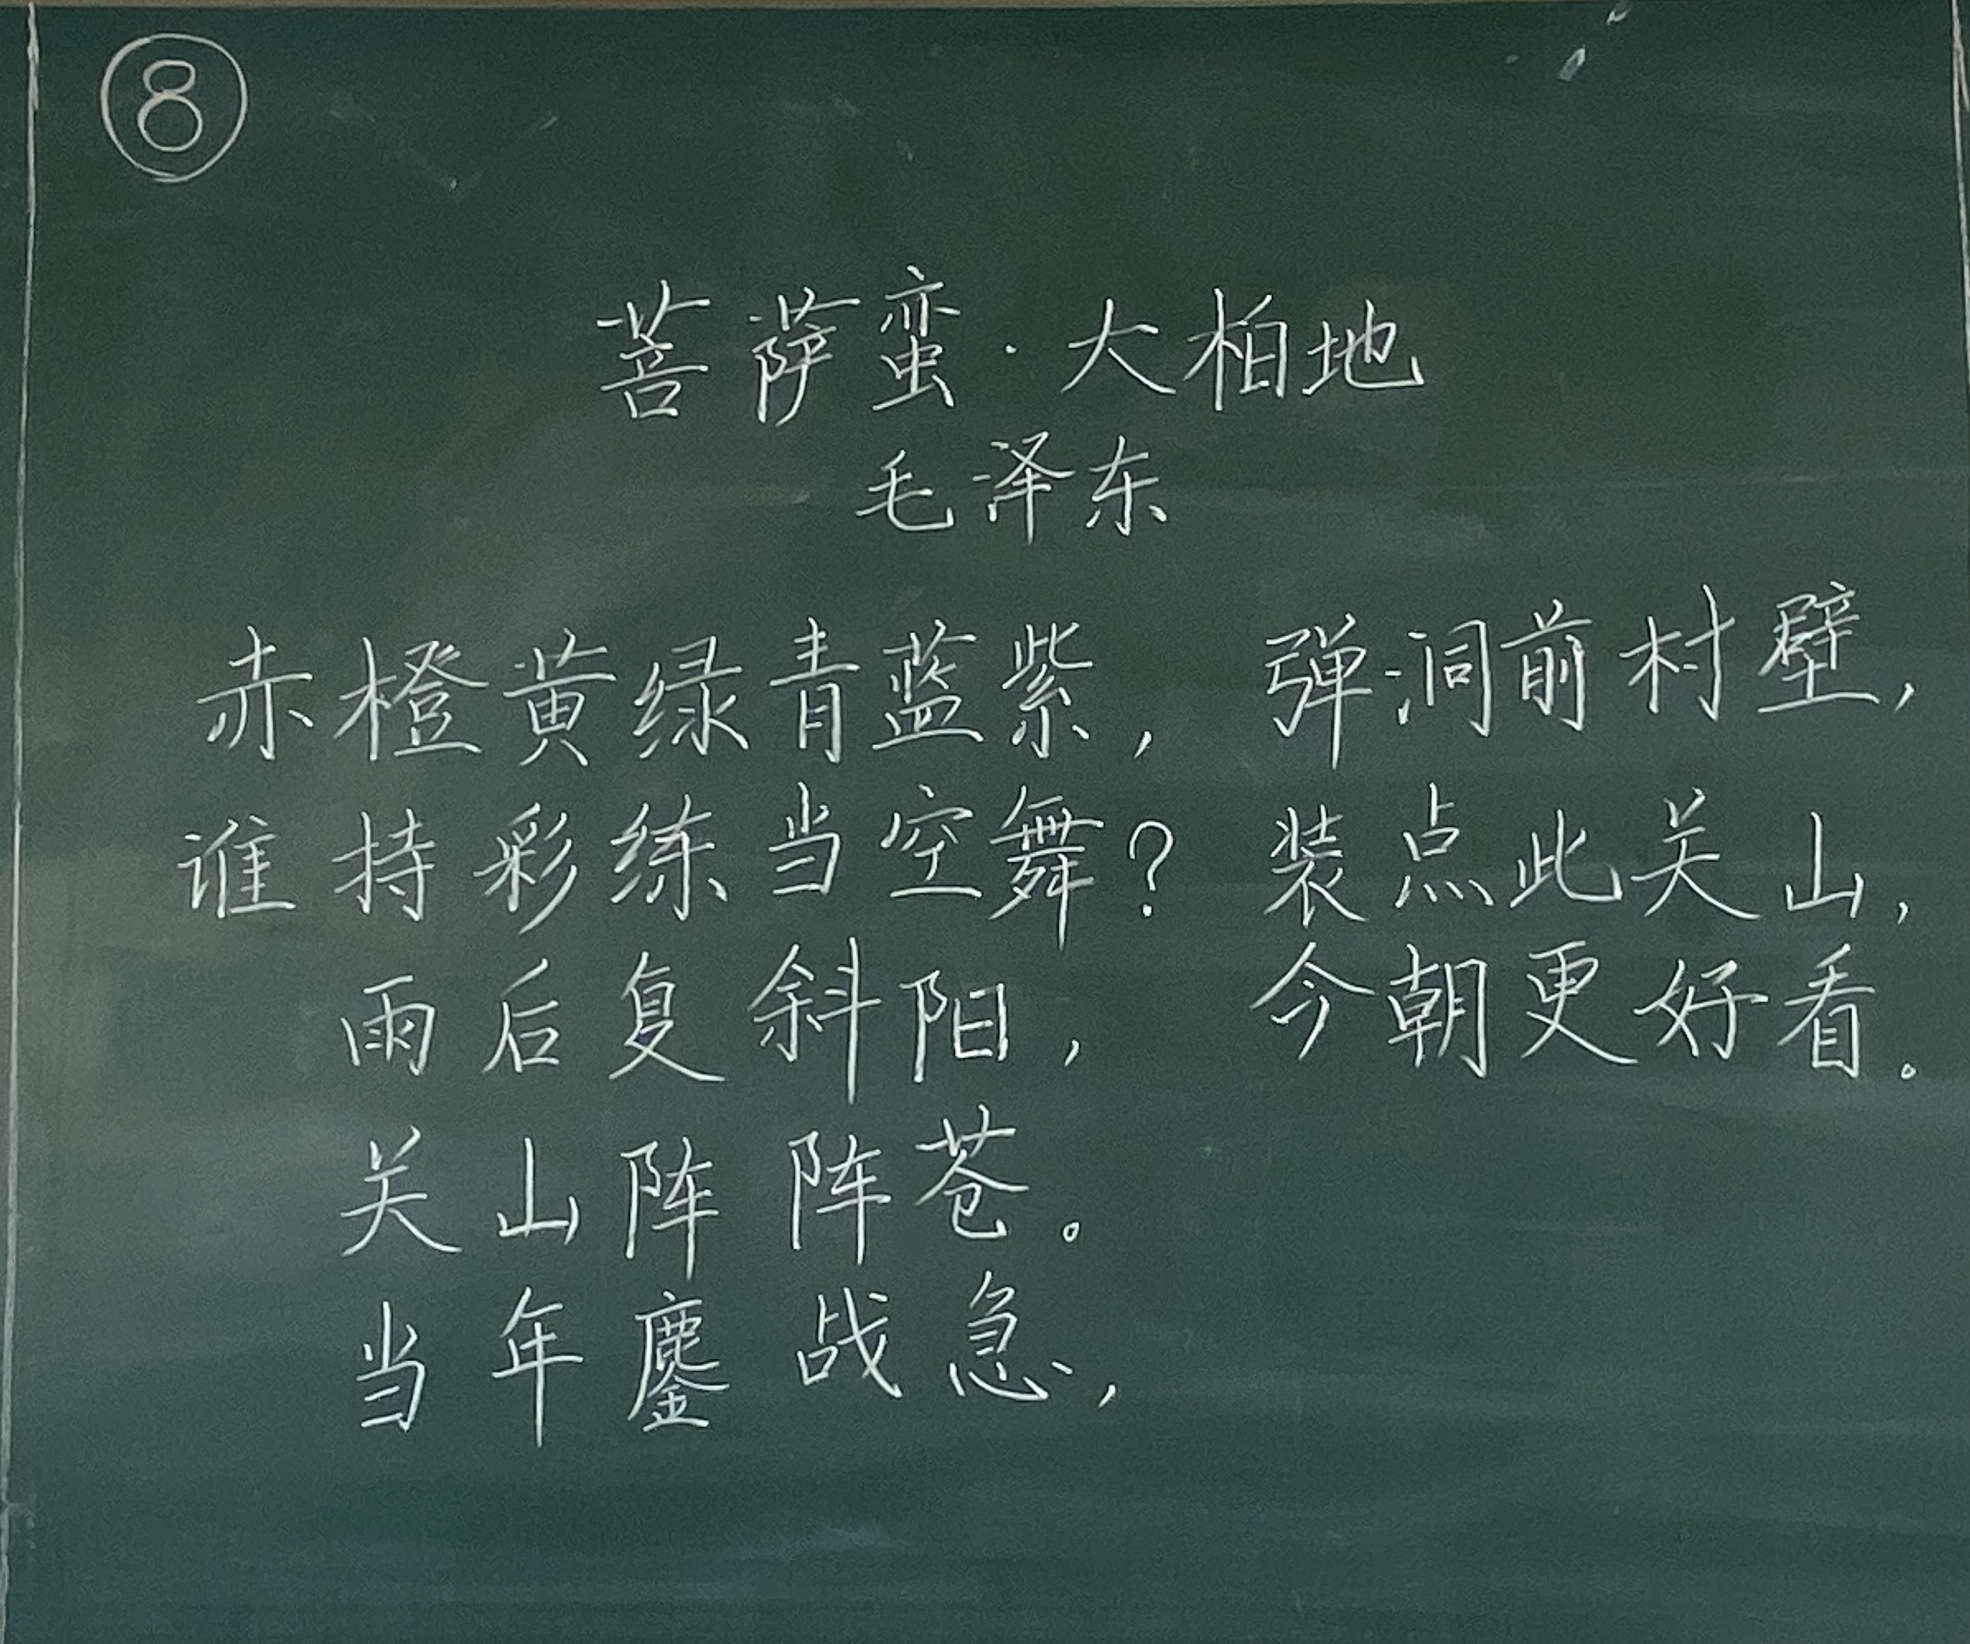 ⑧
菩萨蛮·大柏地
毛泽东
赤橙黄绿青蓝紫，
谁持彩练当空舞？
雨后复斜阳，
关山阵阵苍。
当年鏖战急，
弹洞前村壁，
装点此关山，
今朝更好看。